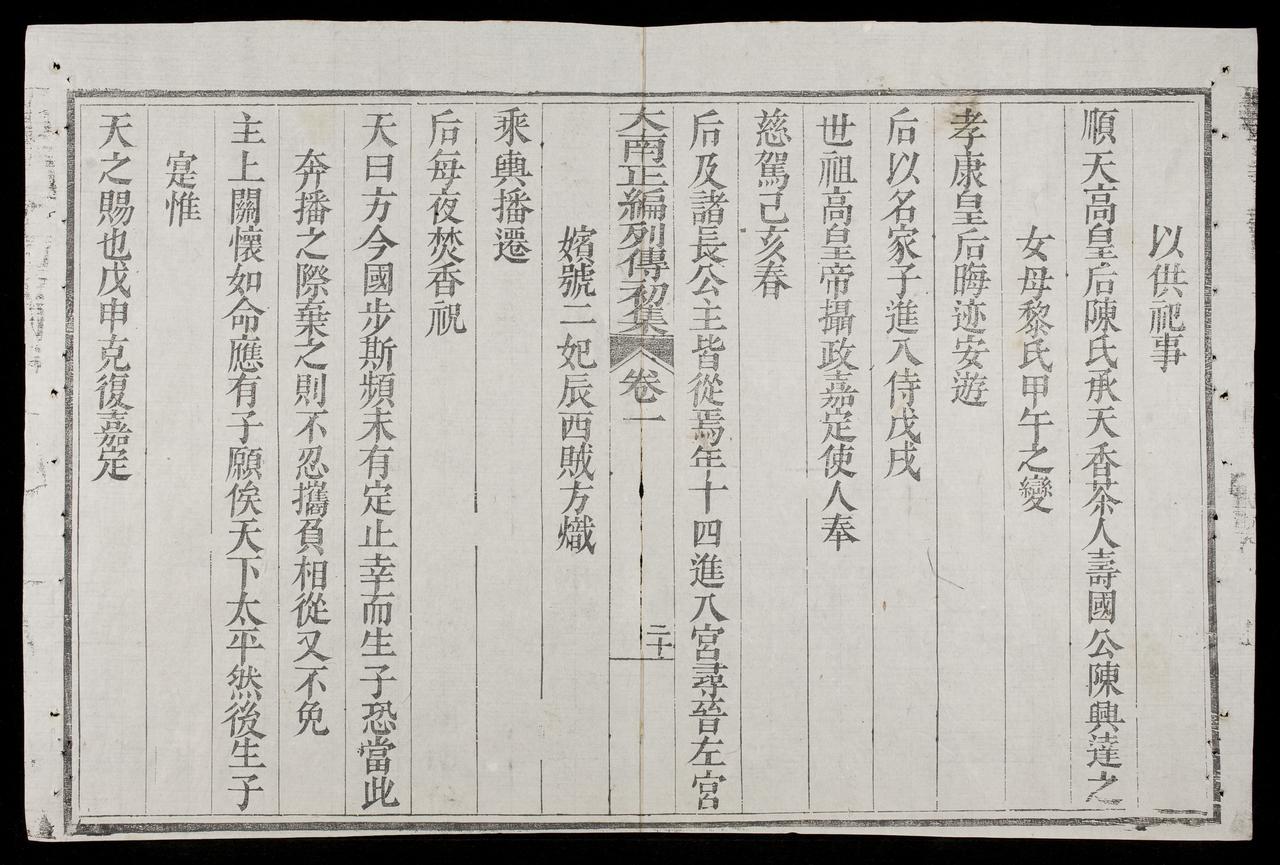 以供祀事
順天高皇后陳氏承天香茶人壽國公陳興達之
女母黎氏甲午之變
孝康皇后晦迹安遊
后以名家子進入侍戊戌
世祖高皇帝攝政嘉定使人奉
慈駕己亥春
后及諸長公主皆從焉年十四進入宮尋晉左宮
大南正編列傳初集 卷一 二十
嬪號二妃辰西賊方熾
乘輿播遷
后每夜焚香祝
天曰方今國步斯頻未有定止幸而生子恐當此
奔播之際棄之則不忍攜負相從又不免
主上關懷如命應有子願俟天下太平然後生子
寔惟
天之賜也戊申克復嘉定